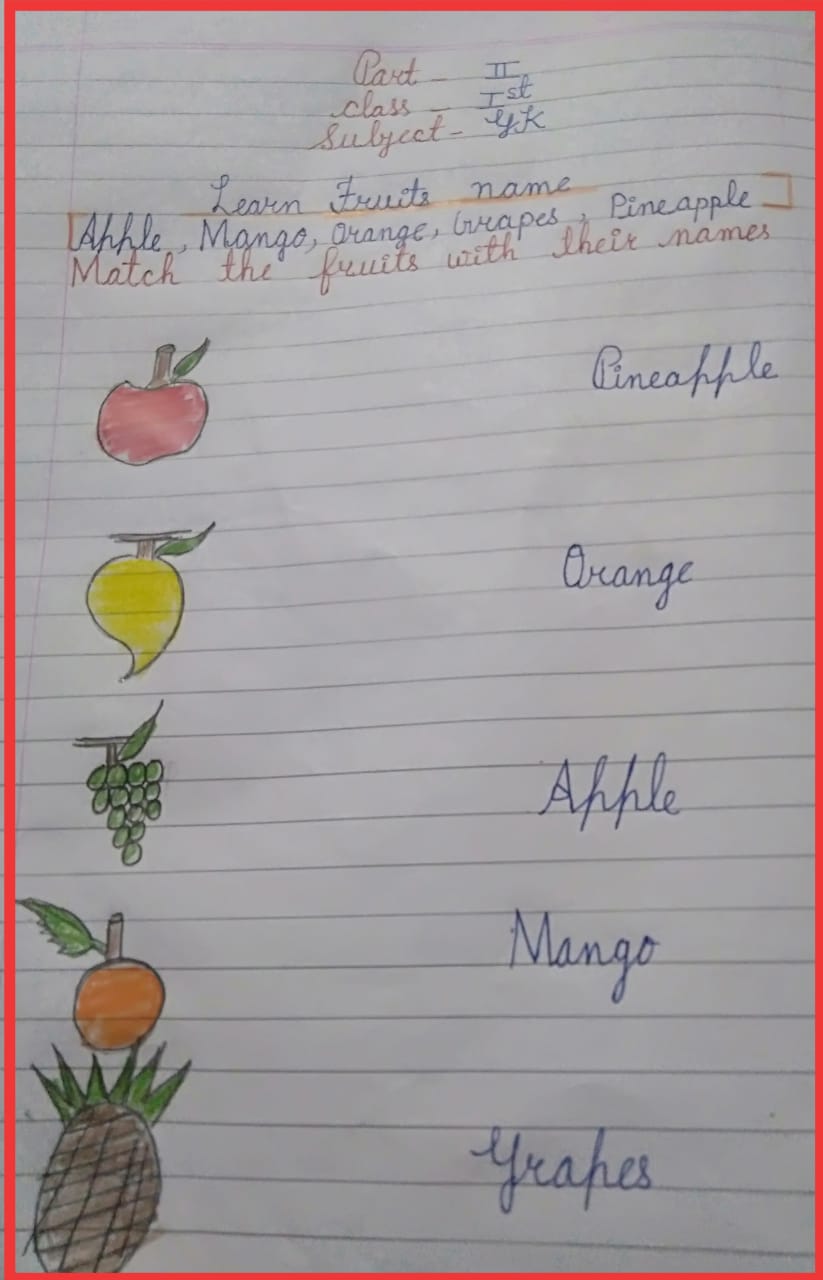 Part - II
class - Ist
Subject - GK
Learn Fruits name
[Apple, Mango, Orange, Grapes, Pineapple]
Match the fruits with their names
Pineapple
Orange
Apple
Mango
Grapes